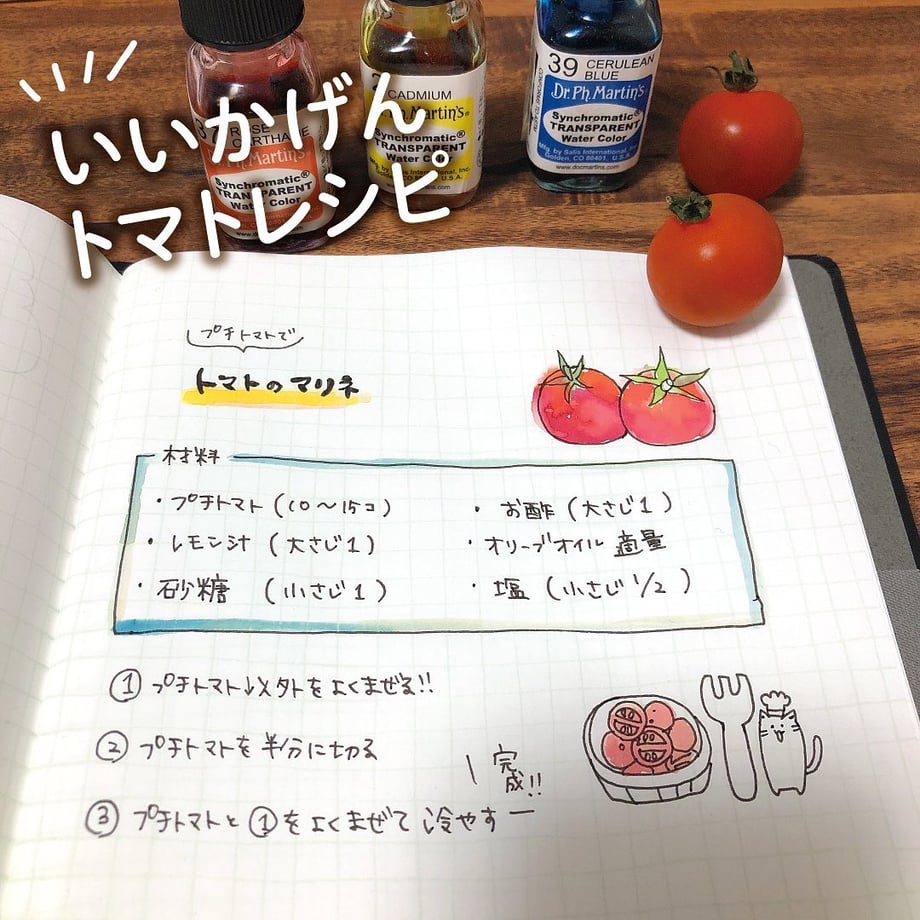 いいかげん
トマトレシピ
ROSE
CARTHAME
Dr. Ph. Martin's
Synchromatic®
TRANSPARENT
Water Color
CADMIUM
Ph. Martin's
Synchromatic®
TRANSPARENT
Water Color
Mfg. by Salis International, Inc.
Golden, CO 80401, U.S.A.
www.docmartins.com
39 CERULEAN
BLUE
Dr. Ph. Martin's
Synchromatic®
TRANSPARENT
Water Color
Mfg. by Salis International, Inc.
Golden, CO 80401, U.S.A.
www.docmartins.com
プチトマトで
トマトのマリネ
材料
・プチトマト(10〜15コ)
・お酢(大さじ1)
・レモン汁(大さじ1)
・オリーブオイル 適量
・砂糖(小さじ1)
・塩(小さじ1/2)
① プチトマト以外をよくまぜる!!
② プチトマトを半分に切る
③ プチトマトと①をよくまぜて冷やす
完成!!